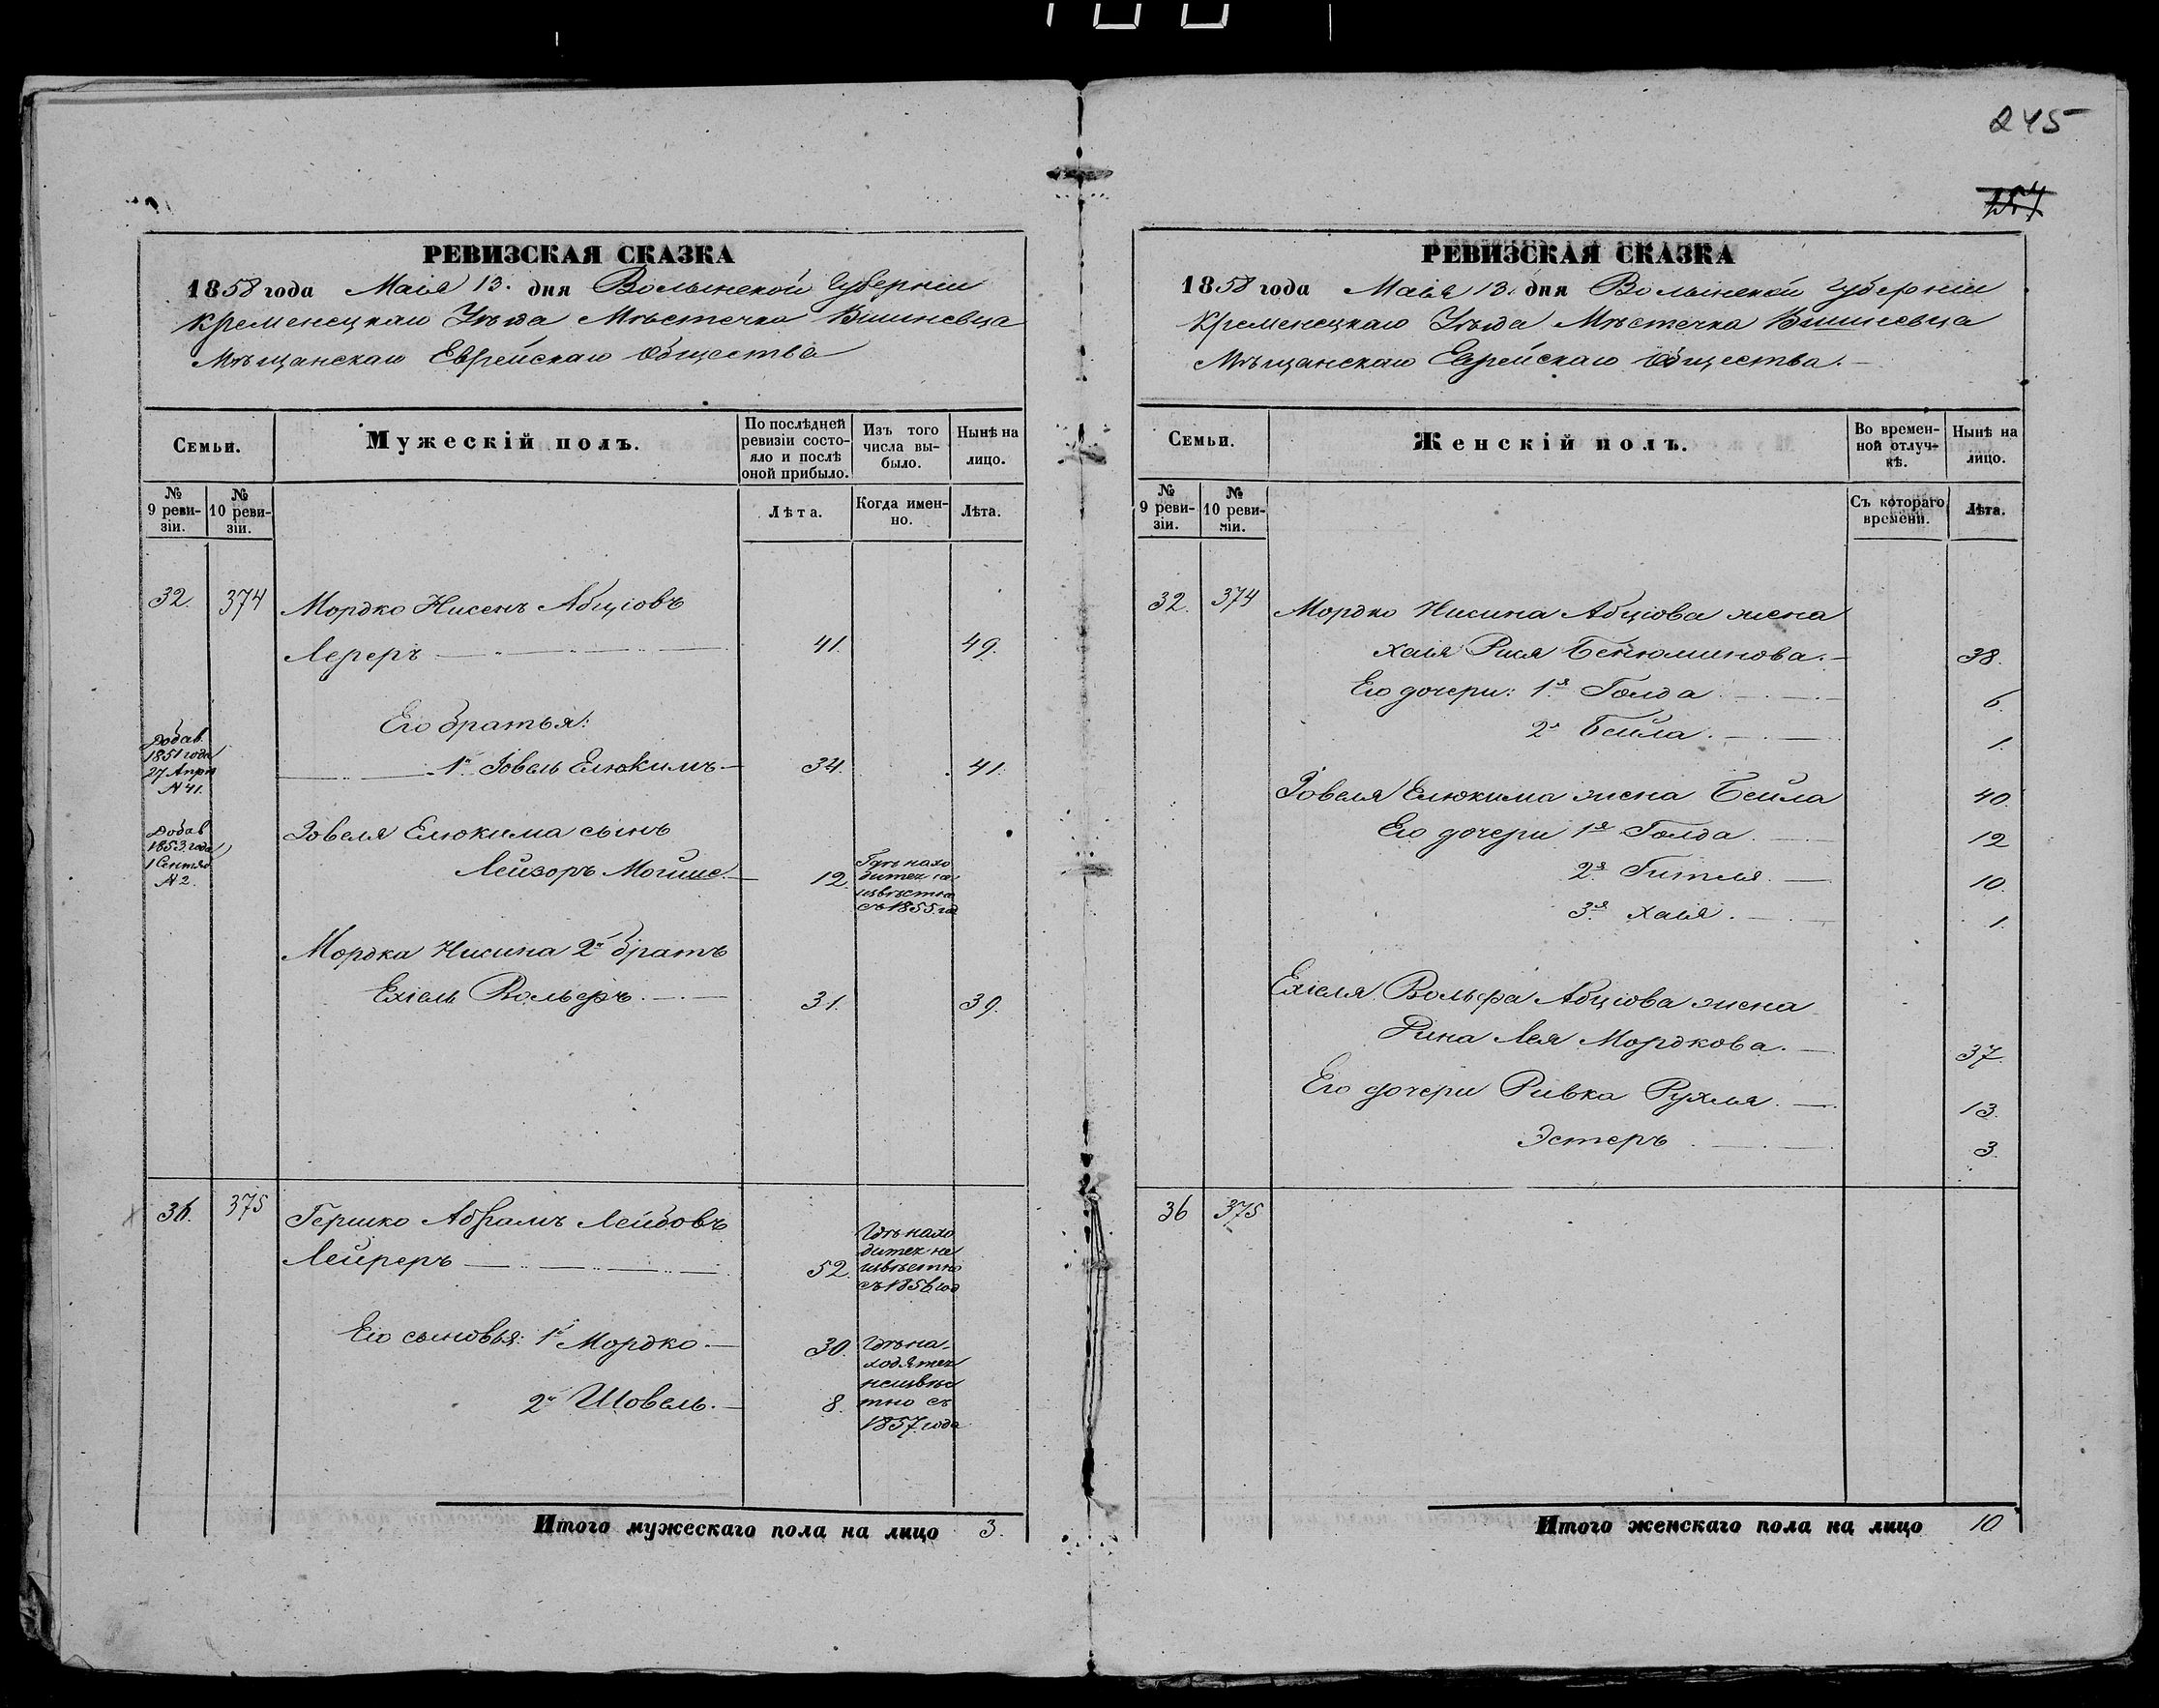 245
154
РЕВИЗСКАЯ СКАЗКА
1858 года Маія 13. дня Волынской Губерніи
Кременецкаго Уѣзда Мѣстечка Вишневца
Мѣщанскаго Еврейскаго Общества
Семьи.
Мужескій полъ.
По послѣдней ревизіи состояло и послѣ оной прибыло.
Изъ того числа выбыло.
Нынѣ на лицо.
№ 9 ревизіи.
№ 10 ревизіи.
Лѣта.
Когда именно.
Лѣта.
32. 374 Мордко Нисенъ Абціовъ
Лереръ 41. 49.
Его братья:
Добав. 1851 года 27 Апрл N 41.
1й Іовель Елюкимъ 34. 41.
Добав 1853 года 1 Сентяб N 2.
Іовеля Елюкима сынъ
Лейзоръ Мойше. 12.
Гдѣ нахо
дитех не
извѣстно
съ 1855 год
Мордка Нисина 2й братъ
Ехіель Вольфъ. 31. 39.
36. 375 Гершко Абрамъ Лейбовъ
Лейреръ 52.
Гдѣ нахо
дитех не
извѣстно
съ 1856 год
Его сыновья: 1й Мордко 30.
2й Шовель. 8.
Гдѣ на-
ходятех
неизвѣс
тно съ
1857 года
Итого мужескаго пола на лицо 3.
РЕВИЗСКАЯ СКАЗКА
1858 года Маія 13. дня Волынской Губерніи
Кременецкаго Уѣзда Мѣстечка Вишневца
Мѣщанскаго Еврейскаго Общества.
Семьи.
Женскій полъ.
Во временной отлучкѣ.
Нынѣ на лицо.
№ 9 ревизіи.
№ 10 ревизіи.
Съ котораго времени.
Лѣта.
32. 374 Мордко Нисина Абціова жена
Хаія Рися Бенюминова. 38.
Его дочери: 1я Голда 6.
2я Бейла. 1.
Іовеля Елюкима жена Бейла 40.
Его дочери 1я Голда. 12
2я Гитля. 10.
3я Хаія. 1.
Ехіеля Вольфа Абціова жена
Дина Лея Мордкова. 37.
Его дочери Ривка Рухля. 13.
Эстеръ 3.
36 375
Итого женскаго пола на лицо 10